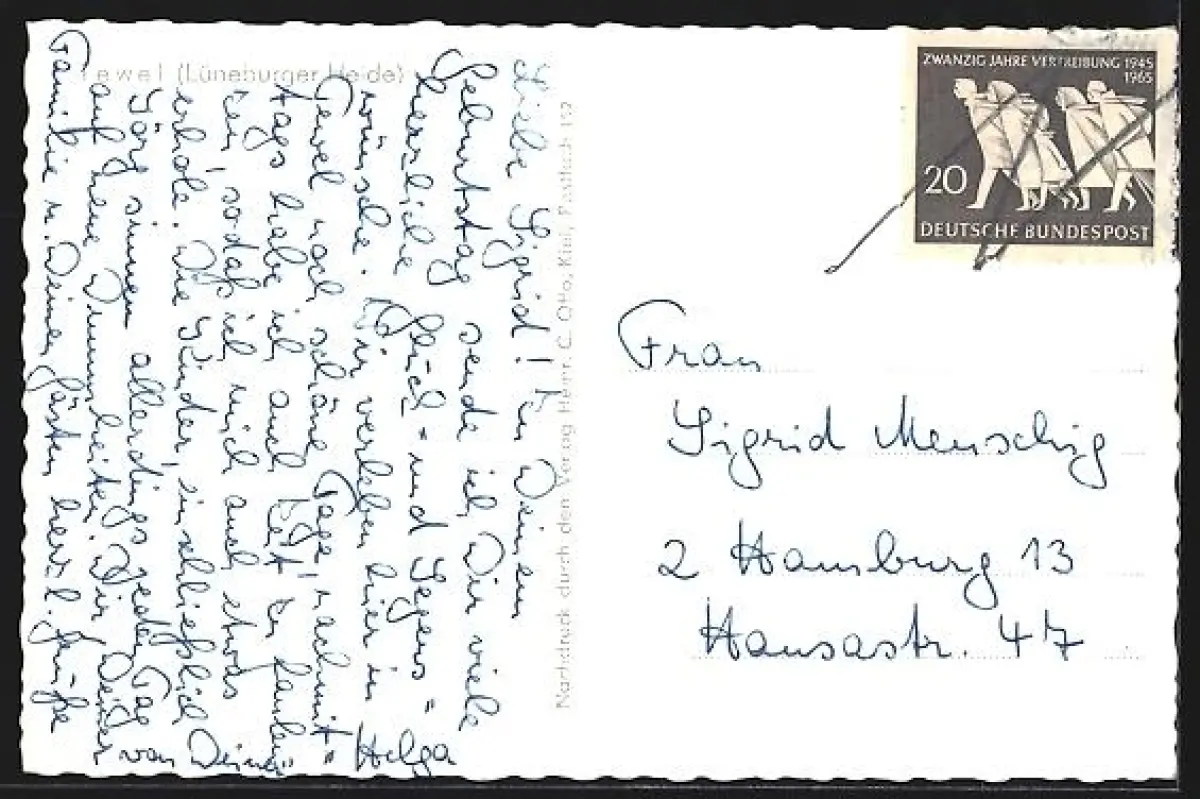 Tewel (Lüneburger Heide)
Liebe Sigrid! Zu Deinem
Geburtstag sende ich Dir viele
herzliche Glück- und Segens=
wünsche. Wir verleben hier in
Tewel noch schöne Tage, nachmit=
tags habe ich auch Zeit zu faulen=
zen, sodaß ich mich auch etwas
erhole. Die Kinder, einschließlich
Jörg sinnen allerdings jeden Tag
auf neue Dummheiten. Dir, Deiner
Familie u. Deinen Gästen herzl. Grüße
von Deiner Helga
Nachdruck durch den Verlag Heinr. C. Otto, Kiel, Postfach 152
ZWANZIG JAHRE VERTREIBUNG 1945
1965
20
DEUTSCHE BUNDESPOST
Frau
Sigrid Menschig
2 Hamburg 13
Hansastr. 47